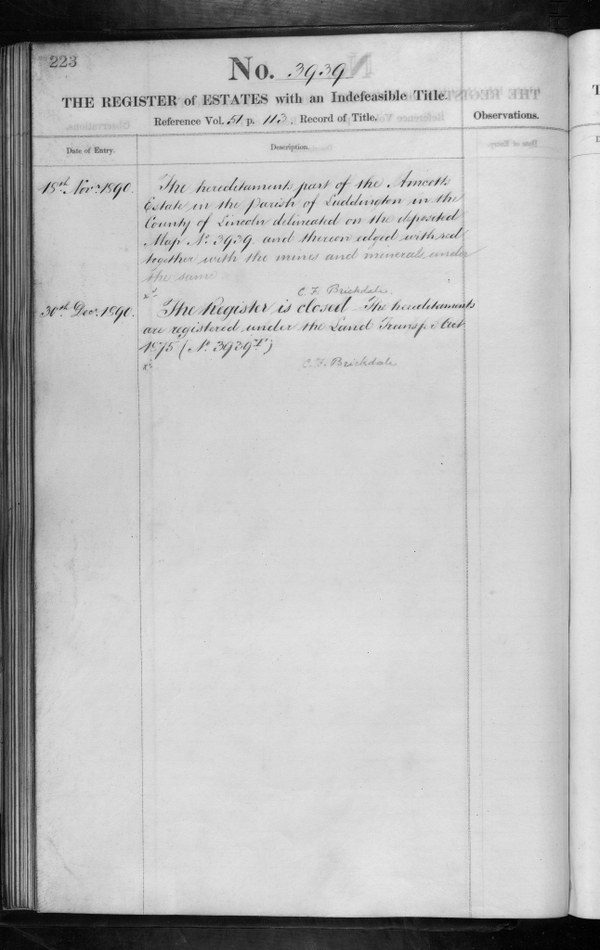 223
No. 3939
THE REGISTER of ESTATES with an Indefeasible Title.
Reference Vol. 51 p. 113. Record of Title.
Observations.
Date of Entry.
Description.
18th Novr. 1890.
The hereditaments part of the Amcotts
Estate in the Parish of Luddington in the
County of Lincoln delineated on the deposited
Map No. 3939 and thereon edged with red
together with the mines and minerals under
the same
C. F. Brickdale
30th Decr. 1890.
The Register is closed The hereditaments
are registered under the Land Transfer Act
1875 (No. 3939)
C. F. Brickdale